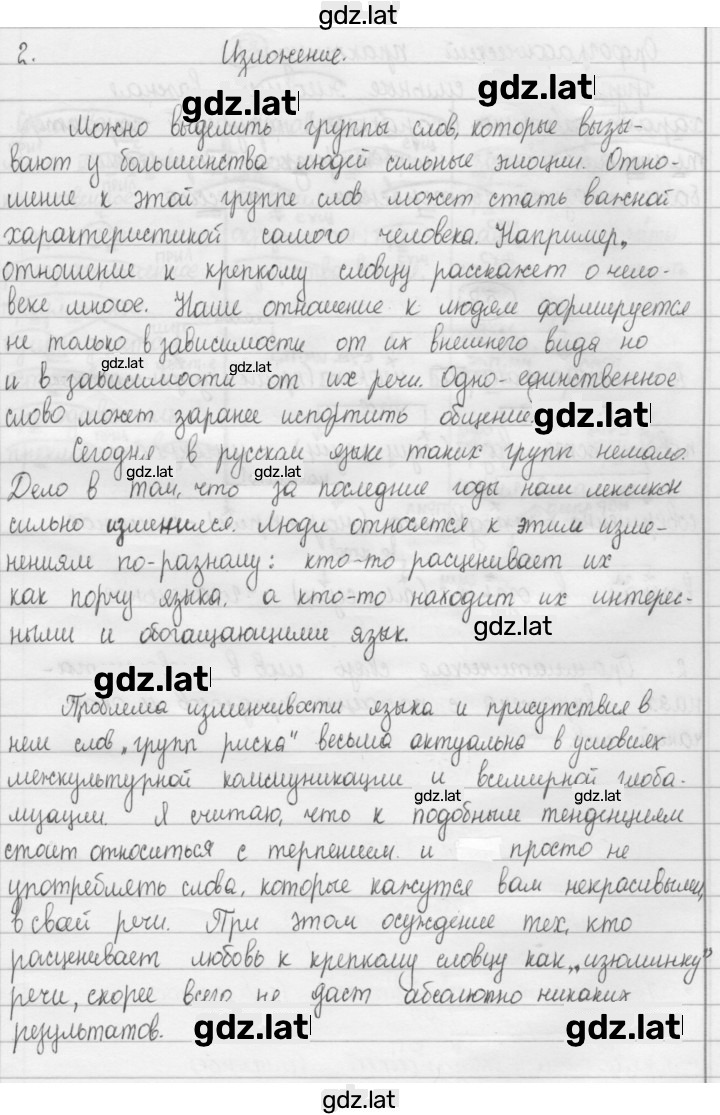 gdz.lat
2. Изложение.
gdz.lat gdz.lat
Можно выделить группы слов, которые вызы-
вают у большинства людей сильные эмоции. Отно-
шение к этой группе слов может стать важной
характеристикой самого человека. Например,
отношение к крепкому словцу расскажет о чело-
веке многое. Наше отношение к людям формируется
не только в зависимости от их внешнего вида но
gdz.lat gdz.lat
и в зависимости от их речи. Одно-единственное
слово может заранее испортить общение. gdz.lat
Сегодня в русском языке таких групп немало.
gdz.lat gdz.lat
Дело в том, что за последние годы наш лексикон
сильно изменился. Люди относятся к этим изме-
нениям по-разному: кто-то расценивает их
как порчу языка, а кто-то находит их интерес-
ными и обогащающими язык. gdz.lat
gdz.lat
Проблема изменчивости языка и присутствия в
нем слов „групп риска" весьма актуальна в условиях
межкультурной коммуникации и всемирной глоба-
gdz.lat gdz.lat
лизации. Я считаю, что к подобным тенденциям
стоит относиться с терпением и просто не
употреблять слова, которые кажутся вам некрасивыми,
в своей речи. При этом осуждение тех, кто
расценивает любовь к крепкому словцу как „изюминку"
речи, скорее всего не даст абсолютно никаких
результатов. gdz.lat gdz.lat
gdz.lat